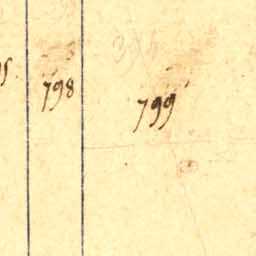 798
799